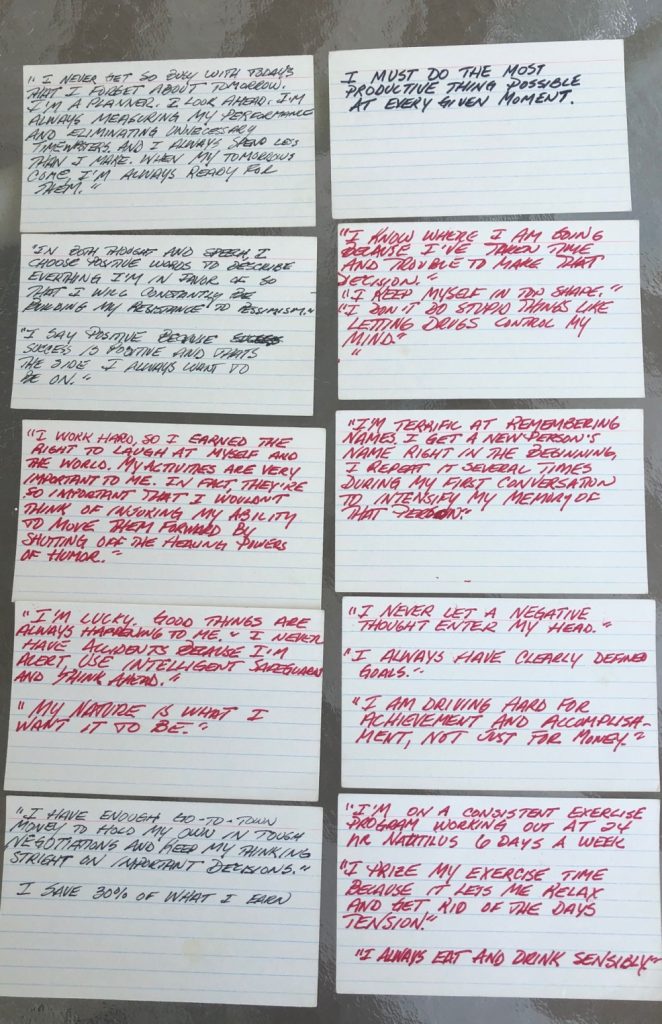 " I NEVER GET SO BUSY WITH TODAY'S
THAT I FORGET ABOUT TOMORROW.
I'M A PLANNER. I LOOK AHEAD. I'M
ALWAYS MEASURING MY PERFORMANCE
AND ELIMINATING UNNECESSARY
TIMEWASTERS. AND I ALWAYS SPEND LESS
THAN I MAKE. WHEN MY TOMORROWS
COME, I'M ALWAYS READY FOR
THEM."
I MUST DO THE MOST
PRODUCTIVE THING POSSIBLE
AT EVERY GIVEN MOMENT.
"IN BOTH THOUGHT AND SPEECH, I
CHOOSE POSITIVE WORDS TO DESCRIBE
EVERTHING I'M IN FAVOR OF SO
THAT I WILL CONSTANTLY BE
BUILDING MY RESISTANCE TO PESSIMISM."
"I SAY POSITIVE BECAUSE
SUCCESS IS POSITIVE AND THATS
THE SIDE I ALWAYS WANT TO
BE ON."
"I KNOW WHERE I AM GOING
BECAUSE I'VE TAKEN TIME
AND TROUBLE TO MAKE THAT
DECISION.
"I KEEP MYSELF IN TOP SHAPE."
"I DON'T DO STUPID THINGS LIKE
LETTING DRUGS CONTROL MY
MIND"
"
"I WORK HARD, SO I EARNED THE
RIGHT TO LAUGH AT MYSELF AND
THE WORLD. MY ACTIVITIES ARE VERY
IMPORTANT TO ME. IN FACT, THEY'RE
SO IMPORTANT THAT I WOULDN'T
THINK OF INJURING MY ABILITY
TO MOVE THEM FORWARD BY
SHUTTING OFF THE HEALING POWERS
OF HUMOR."
"I'M TERRIFIC AT REMEMBERING
NAMES. I GET A NEW PERSON'S
NAME RIGHT IN THE BEGINNING,
I REPEAT IT SEVERAL TIMES
DURING MY FIRST CONVERSATION
TO INTENSIFY MY MEMORY OF
THAT PERSON."
"I'M LUCKY. GOOD THINGS ARE
ALWAYS HAPPENING TO ME." I NEVER
HAVE ACCIDENTS BECAUSE I'M
ALERT, USE INTELLIGENT SAFEGUARDS
AND THINK AHEAD."
" MY NATURE IS WHAT I
WANT IT TO BE."
"I NEVER LET A NEGATIVE
THOUGHT ENTER MY HEAD."
"I ALWAYS HAVE CLEARLY DEFINED
GOALS."
"I AM DRIVING HARD FOR
ACHIEVEMENT AND ACCOMPLISH-
MENT, NOT JUST FOR MONEY."
"I HAVE ENOUGH GO-TO-TOWN
MONEY TO HOLD MY OWN IN TOUGH
NEGOTIATIONS AND KEEP MY THINKING
STRIGHT ON IMPORTANT DECISIONS."
I SAVE 30% OF WHAT I EARN
"I'M ON A CONSISTENT EXERCISE
PROGRAM WORKING OUT AT 24
HR NAUTILUS 6 DAYS A WEEK
"I PRIZE MY EXERCISE TIME
BECAUSE IT LETS ME RELAX
AND GET RID OF THE DAYS
TENSION."
"I ALWAYS EAT AND DRINK SENSIBLY."